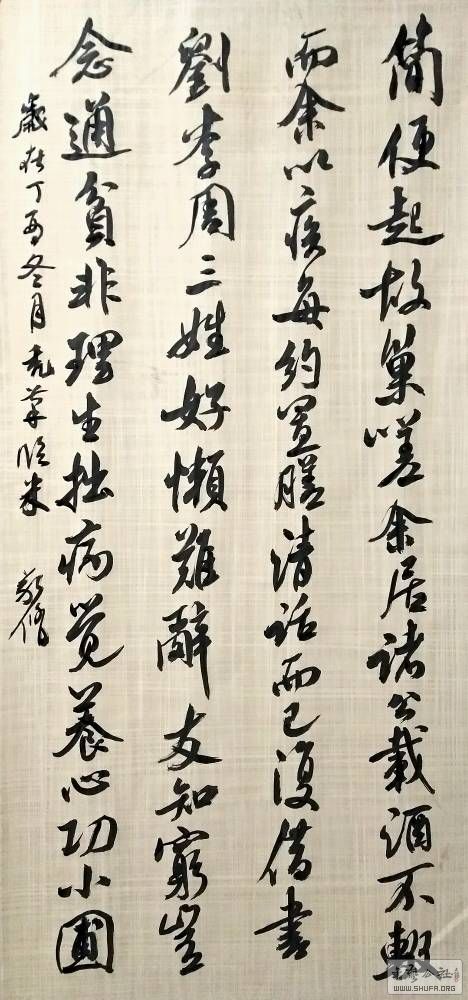 簡便起故巢嗟余居諸公載酒不輟
而余以疾每約置膳清話而已復借書
劉李周三姓好懶難辭友知窮豈
念通貧非理生拙病覺養心功小圃
歲在丁酉冬月草臨米
WWW.SHUFA.ORG